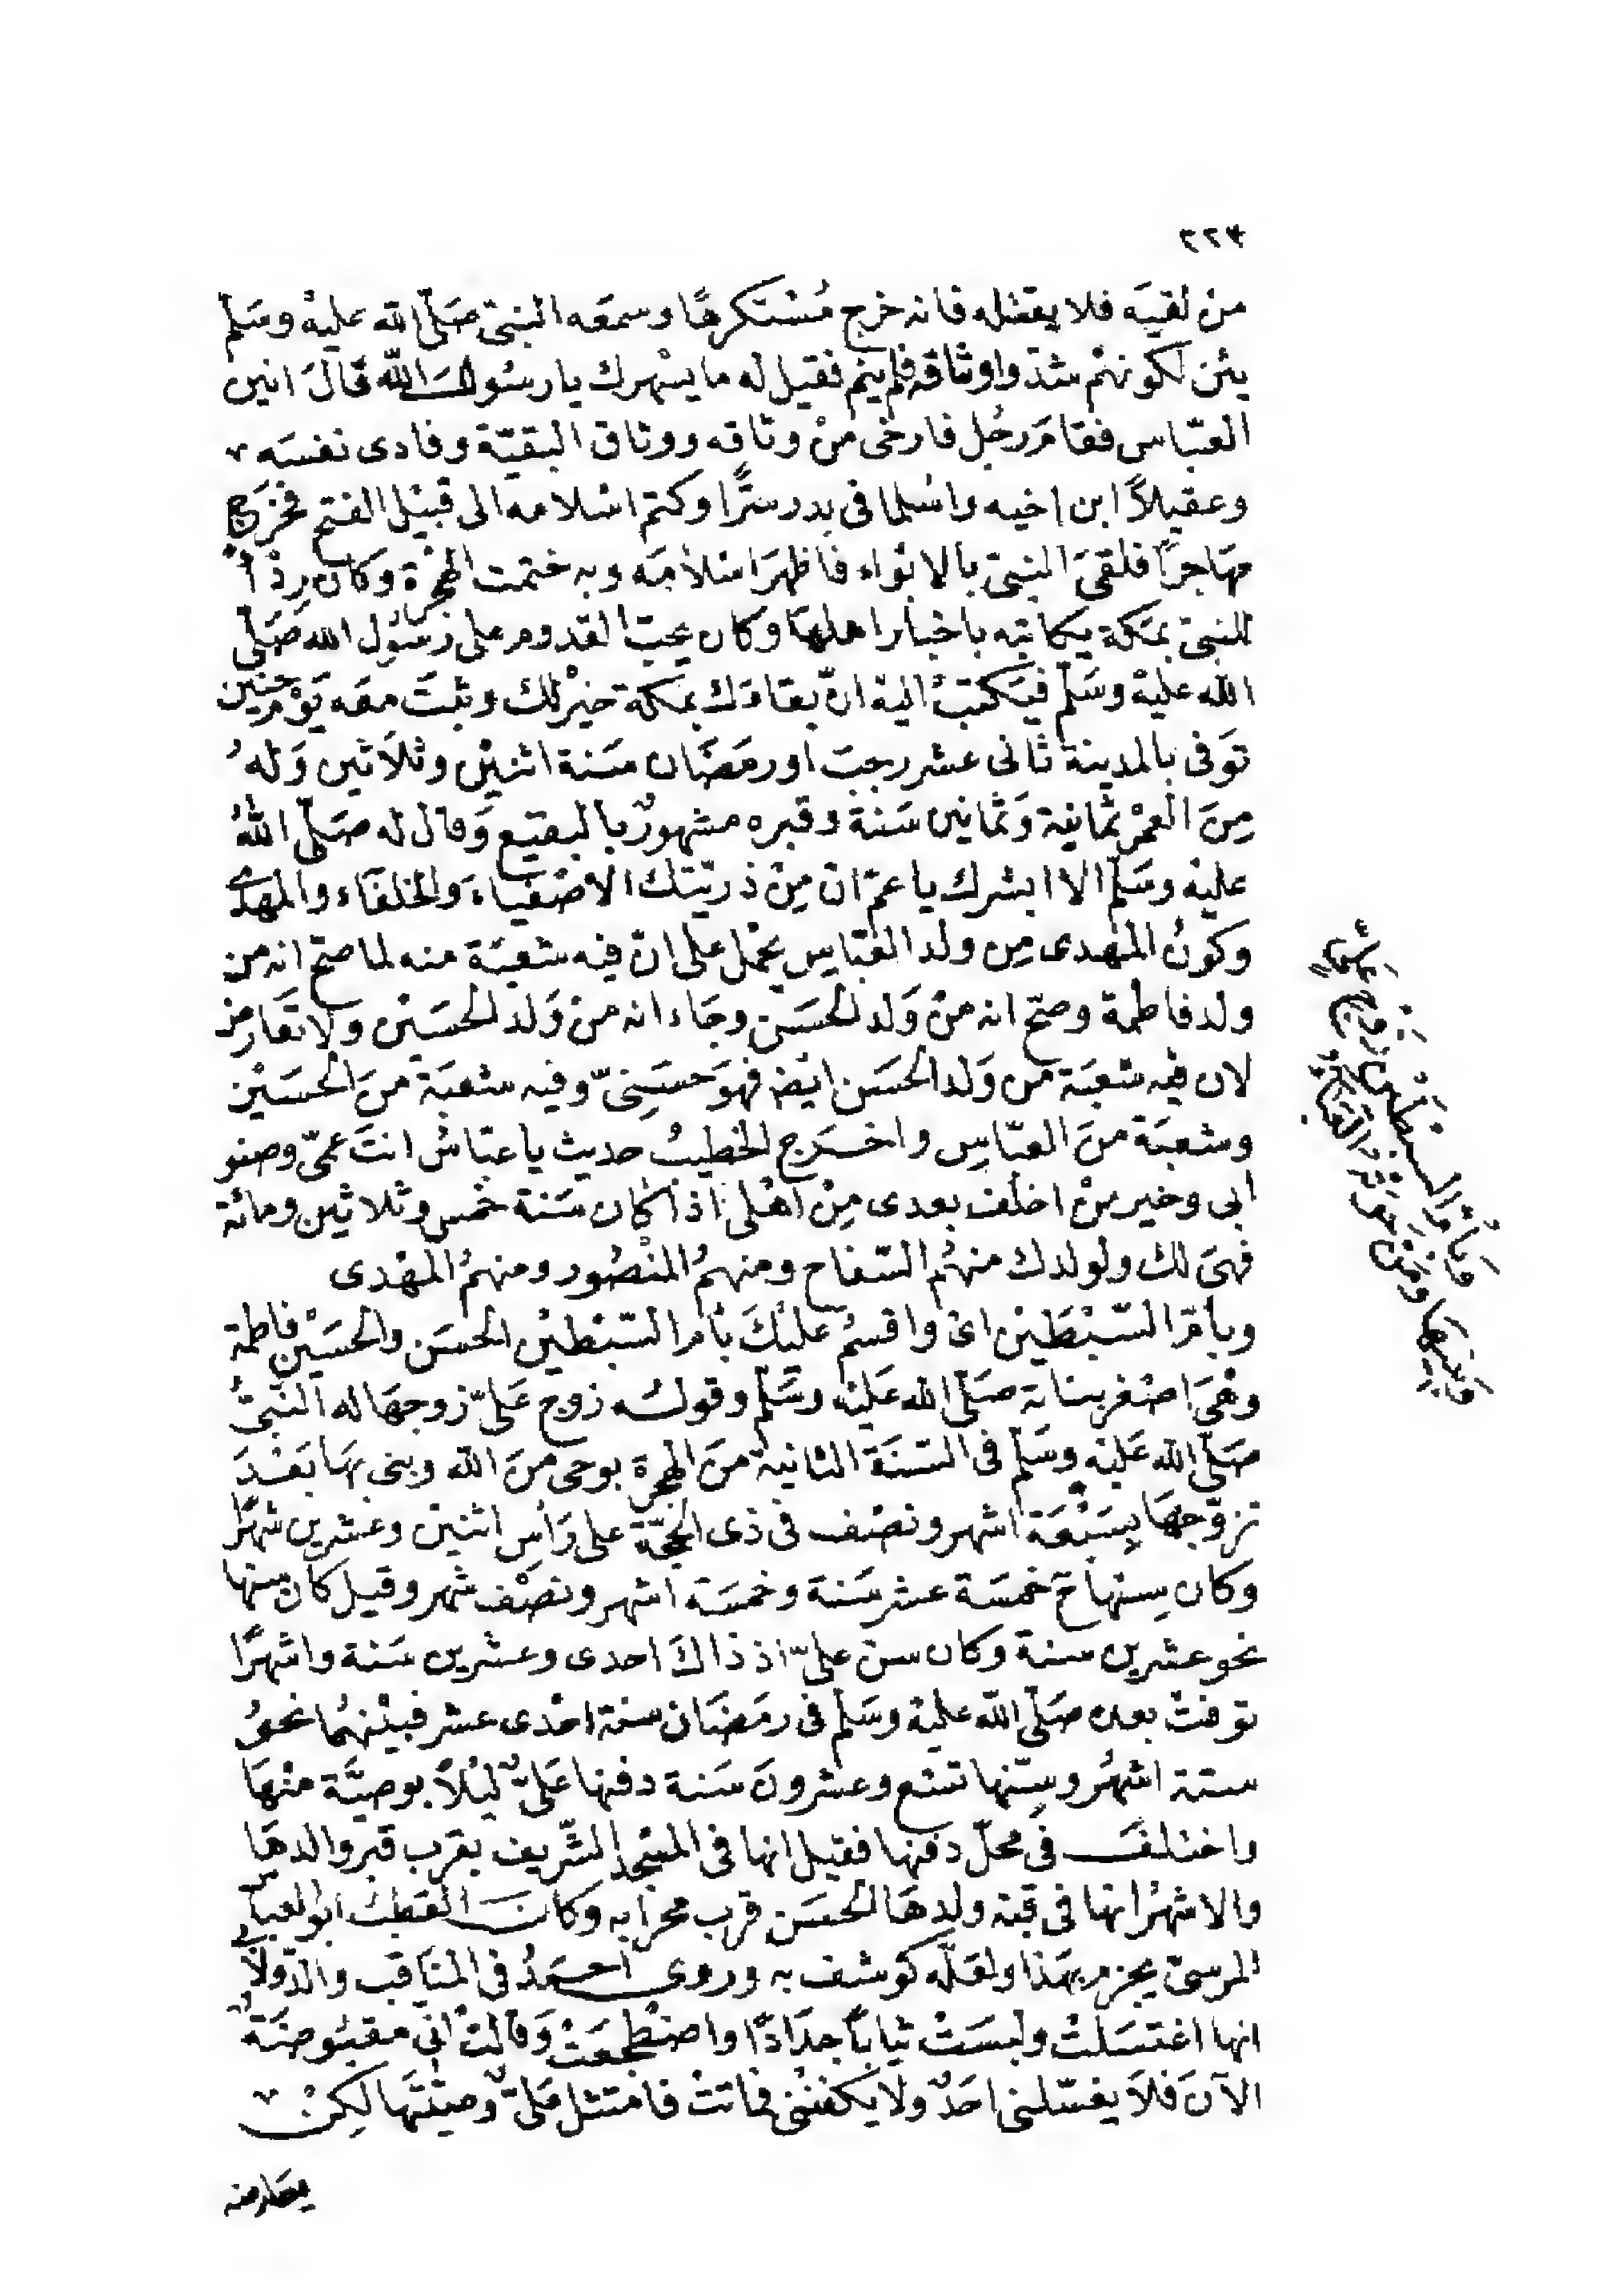 ٢٢٤
من لقيَه فلا يقتله فانه خرج مُسْتكرهًا وسمعَه النبى صَلّى الله عليْه وسَلم
يئن لكونهم شدّوا وثاقه فلم ينم فقيل له ما يسْهرك يا رسُولَ الله قالَ انين
العبّاس فقامَ رجُل فارخى منْ وثاقه ووثاق البقيّة وفادى نفسَه
وعقيلاً ابن اخيه واسْلما فى بدر سرًّا وكتم اسْلامه الى قبيْل الفتح فخرَج
مهَاجرًا فلقىَ النبىّ بالابْواء فاظهرَ اسْلامَه وبه ختمت الهجْرة وكان رِدْأً
للنبىّ بمَكة يكاتبه باخبار اهلهَا وكان يحبّ القدوم على رَسُول الله صَلّى
الله عليْه وسَلّم فيَكتبُ اليْه انّ بقاءَك بمكة خيْر لك وثبتَ معَه يَوْم حنين
توَفى بالمدينة ثانى عشر رجبَ او رمَضَان سَنة اثنيْن وثلاَثين وَلهُ
مِنَ العمْر ثمانية وَثمانين سَنة وقبره مشهورٌ بالبقيع وَقال له صَلّى اللهُ
عليْه وسَلّم الا ابشرك يا عمّ انّ مِنْ ذريّتك الاصْفيَاءَ وَالخلفَاء والمهدى
وكوْنُ المهْدى مِن ولد العَبّاس يحْمل على انّ فيْه شعبَة منه لما صحّ انه من
ولد فاطمة وصحّ انه منْ وَلد الحسَن وجَاء انه منْ وَلد الحسَيْن ولا تعَارض
لان فيْه شعبَة من وَلد الحسَن ايْض فهوَ حسَنِىّ وفيه شعبَة منَ الحسَيْن
وشعبَة منَ العبّاسِ واخرَج الخطيبُ حديث يا عبّاسُ انتَ عمّى وصنو
ابى وخير منْ اخلف بعدى مِنْ اهْلى اذا كان سَنة خمس وثلاثين ومائة
فهىَ لك ولولدك منهُم السّفاح ومنهمُ المنْصُور ومنهمُ المهْدى
وبأمّ السّبْطَيْن اى واقسمُ عليْكَ بأم السّبْطيْن الحسَن والحسَيْن فاطمة
وهْىَ اصْغر بناته صَلّى الله عَليْه وسَلّم وقوله زوج عَلىّ زوجهَا له النّبىُّ
صَلّى الله عَليْه وسَلّم فى السّنَة الثانية منَ الهجرة بوحى منَ الله وبنى بهَا بعْدَ
تزوّجهَا بِسَبْعَة اشهر ونصْف فى ذى الحجّة على رَأسِ اثنين وعشرين شهرًا
وكان سِنها ح خمسَة عشر سَنة وخمسَة اشهر ونصْف شهر وقيل كان سنها
نحو عشرين سنة وكان سنّ علىّ اذ ذاكَ احدى وعشرين سَنة واشهرًا
توفتْ بعده صَلّى الله عليْه وسَلّم فى رمَضَان سنة احْدى عشر فبيْنهُما نحوُ
ستة اشهُر وسِنّها تسْع وعشرونَ سَنة دفنها عَلىّ ليْلاً بوصيَّة منْهَا
واختلفَ فى محلّ دفنها فقيل انها فى المسْجد الشّريف بقرب قبر والدهَا
والاشهُر انها فى قبّة ولدهَا الحسَن قرب محرابه وكانَ القطب ابو العباس
المرسىّ يجزم بهَذا ولعَلّه كوشف به وروى احمَدُ فى المنَاقب والدّولابى
انها اغتسَلتْ ولبسَتْ ثيابًا جدَادًا واضْطجعَتْ وَقالتْ انى مقبُوضَةٌ
الآنَ فلاَ يغسّلنى احَدٌ ولا يَكفننْى فماتتْ فامتثل عَلىّ وصيّتهَا لكِنْ
يعَارضه
وَبأُمِّ السِّبْطَيْنِ زَوْجِ عَلِيٍّ
وَبَنِيهَا وَمَنْ حَوَتْهُ العَبَاءُ